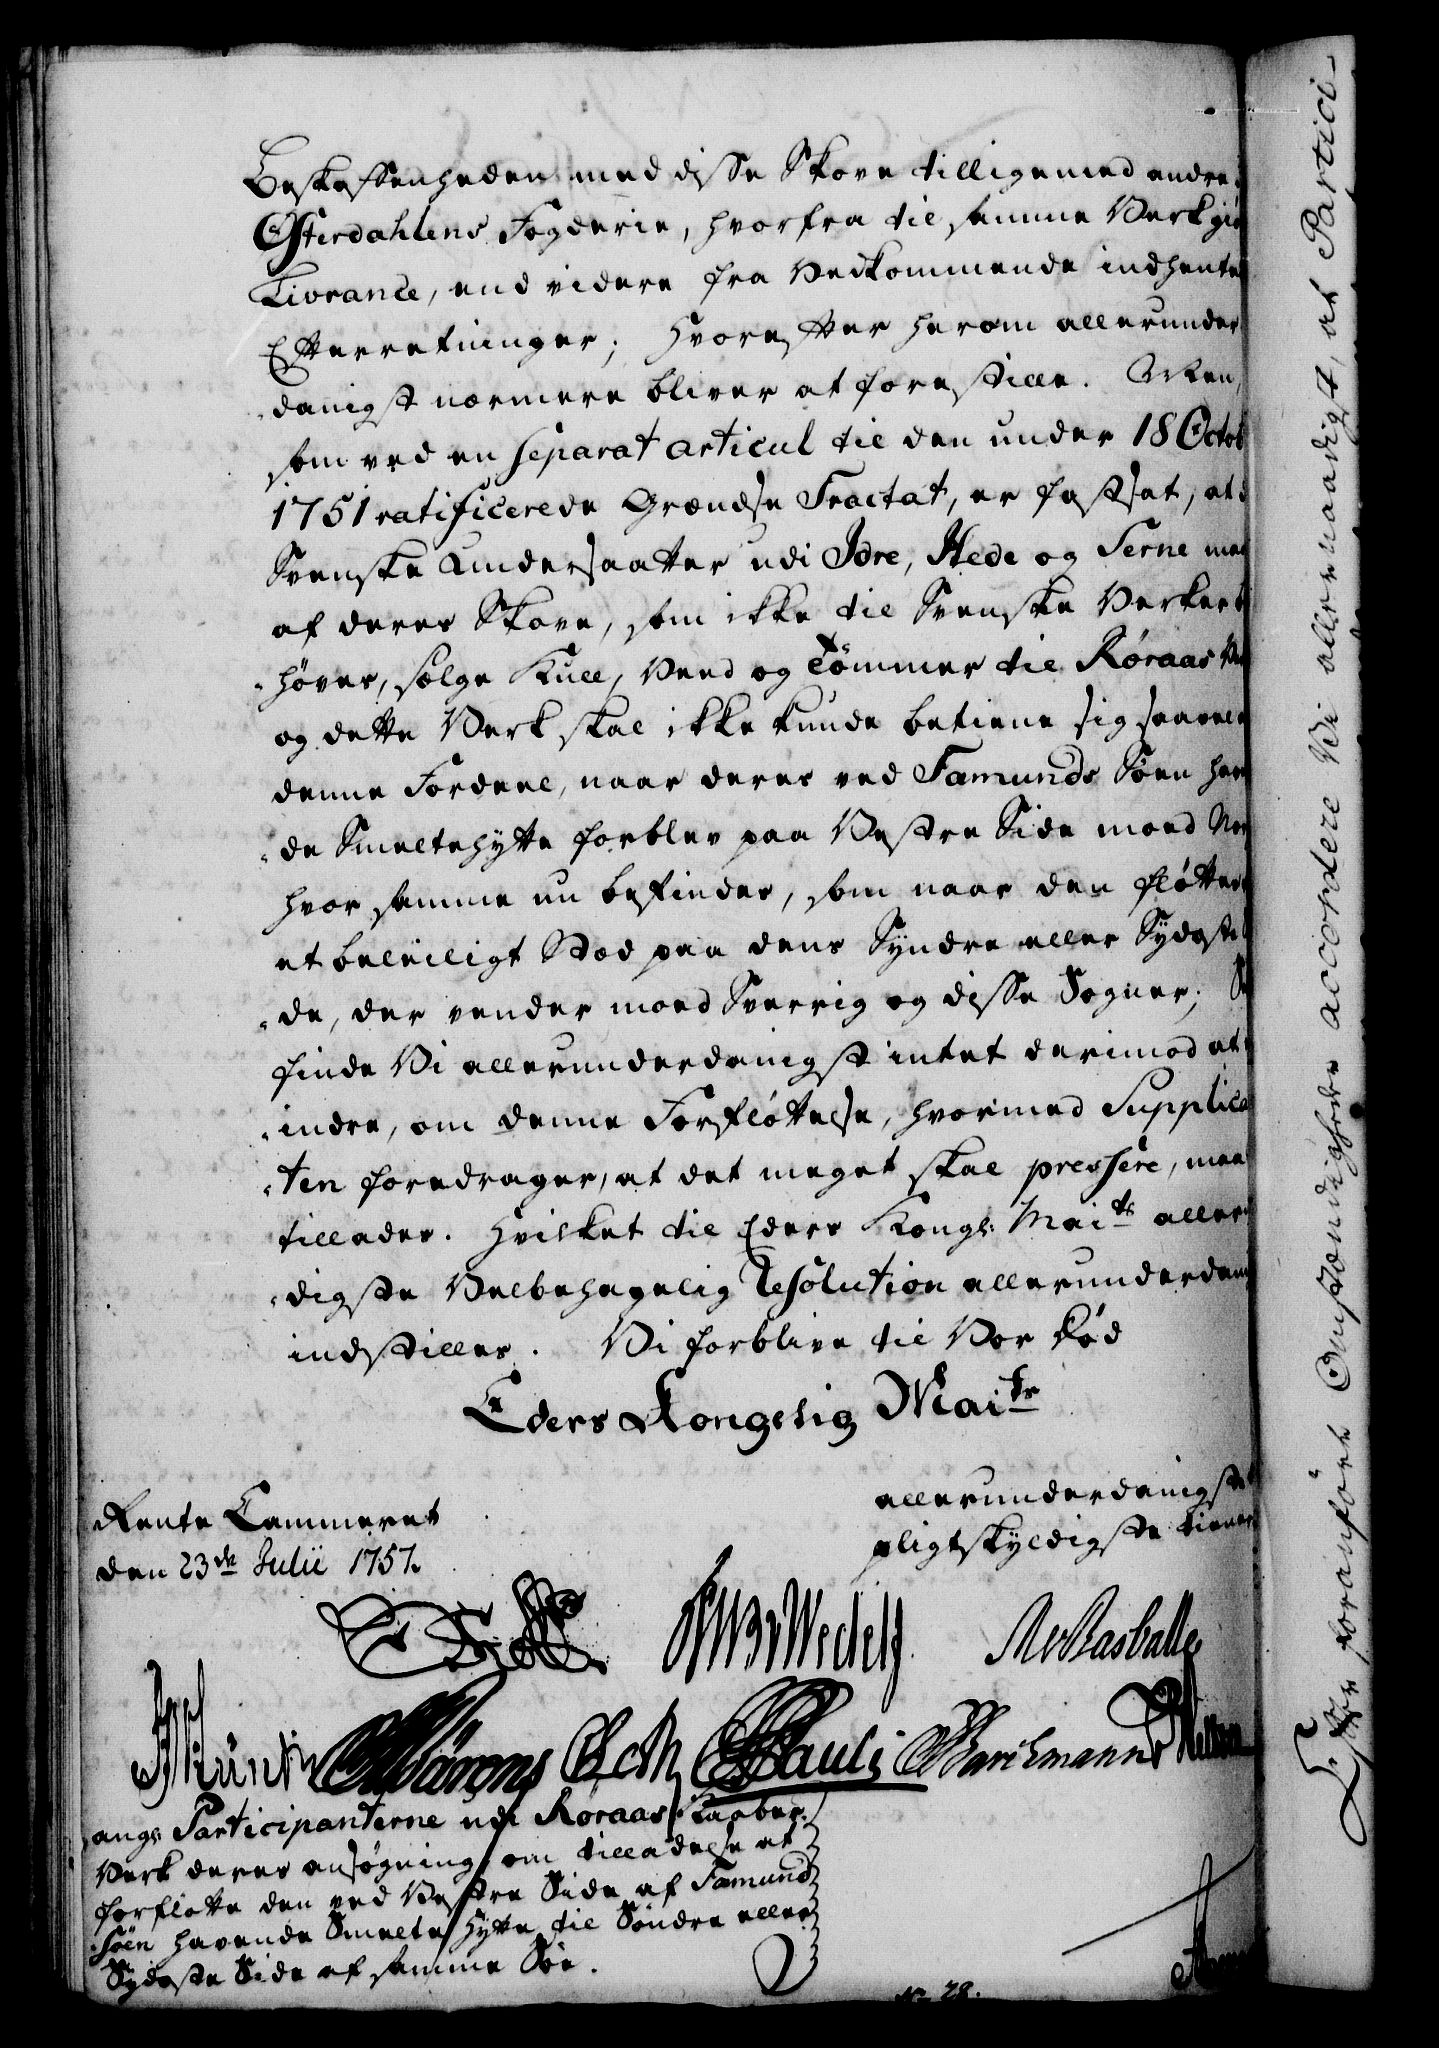 Beskaffenheden med disse Skove tilligemed andre i
Østerdahlens Fogderie, hvorfra til samme Verk giø
Livrance, end videre fra Vedkommende indhente
Efterretninger; hvorefter herom allerunder
danigst nærmere bliver at forestille. Men,
som ved en separat articul til den under 18 Octob
1751 ratificerede Grændse Tractat, er fastsat, at d
Svenske Undersaatter udi Idre, Hede og Serne maa
af deres Skove, som ikke til Svenske Verker be
høves, sælge Kull, Veed og Tømmer til Røraas Ve
og dette Verk skal ikke kunde betiene sig saavel
denne Fordeel, naar deres ved Famunds Søen hav
de Smeltehytte forblev paa Vestre Side moed Nor
hvor samme nu befindes, som naar den fløttes
et beleiligt Stæd paa dens Syndre eller Sydøst
de, der vender moed Sverrig og disse Sogner; S
finde Vi allerunderdanigst intet derimod at
indre, om denne Forfløttelse, hvormed Supplica
ten foredrager, at det meget skal pressere, maa
tillades. Hvilket til Eders Kongl: Maits aller
digste Velbehagelig Resolution allerunderdan
indstilles. Vi forblive til Vor Død
Eders Kongelig Maits
allerunderdanigste
pligtskyldigste tiener
Rente Cammeret
den 23de Julii 1757.
Wedell
Rasballe
Pauli
ang: Participanterne udi Røraas Kaaber
Verk deres ansøgning om tilladelse at
forflotte den ved Vestre Side af Famund
Søen havende Smelte Hytte til Søndre eller
Sydøste Side af samme Søe.
No 28.
Efter foranførte Omstændigheder accordere Vi allernaadigst, at Partici